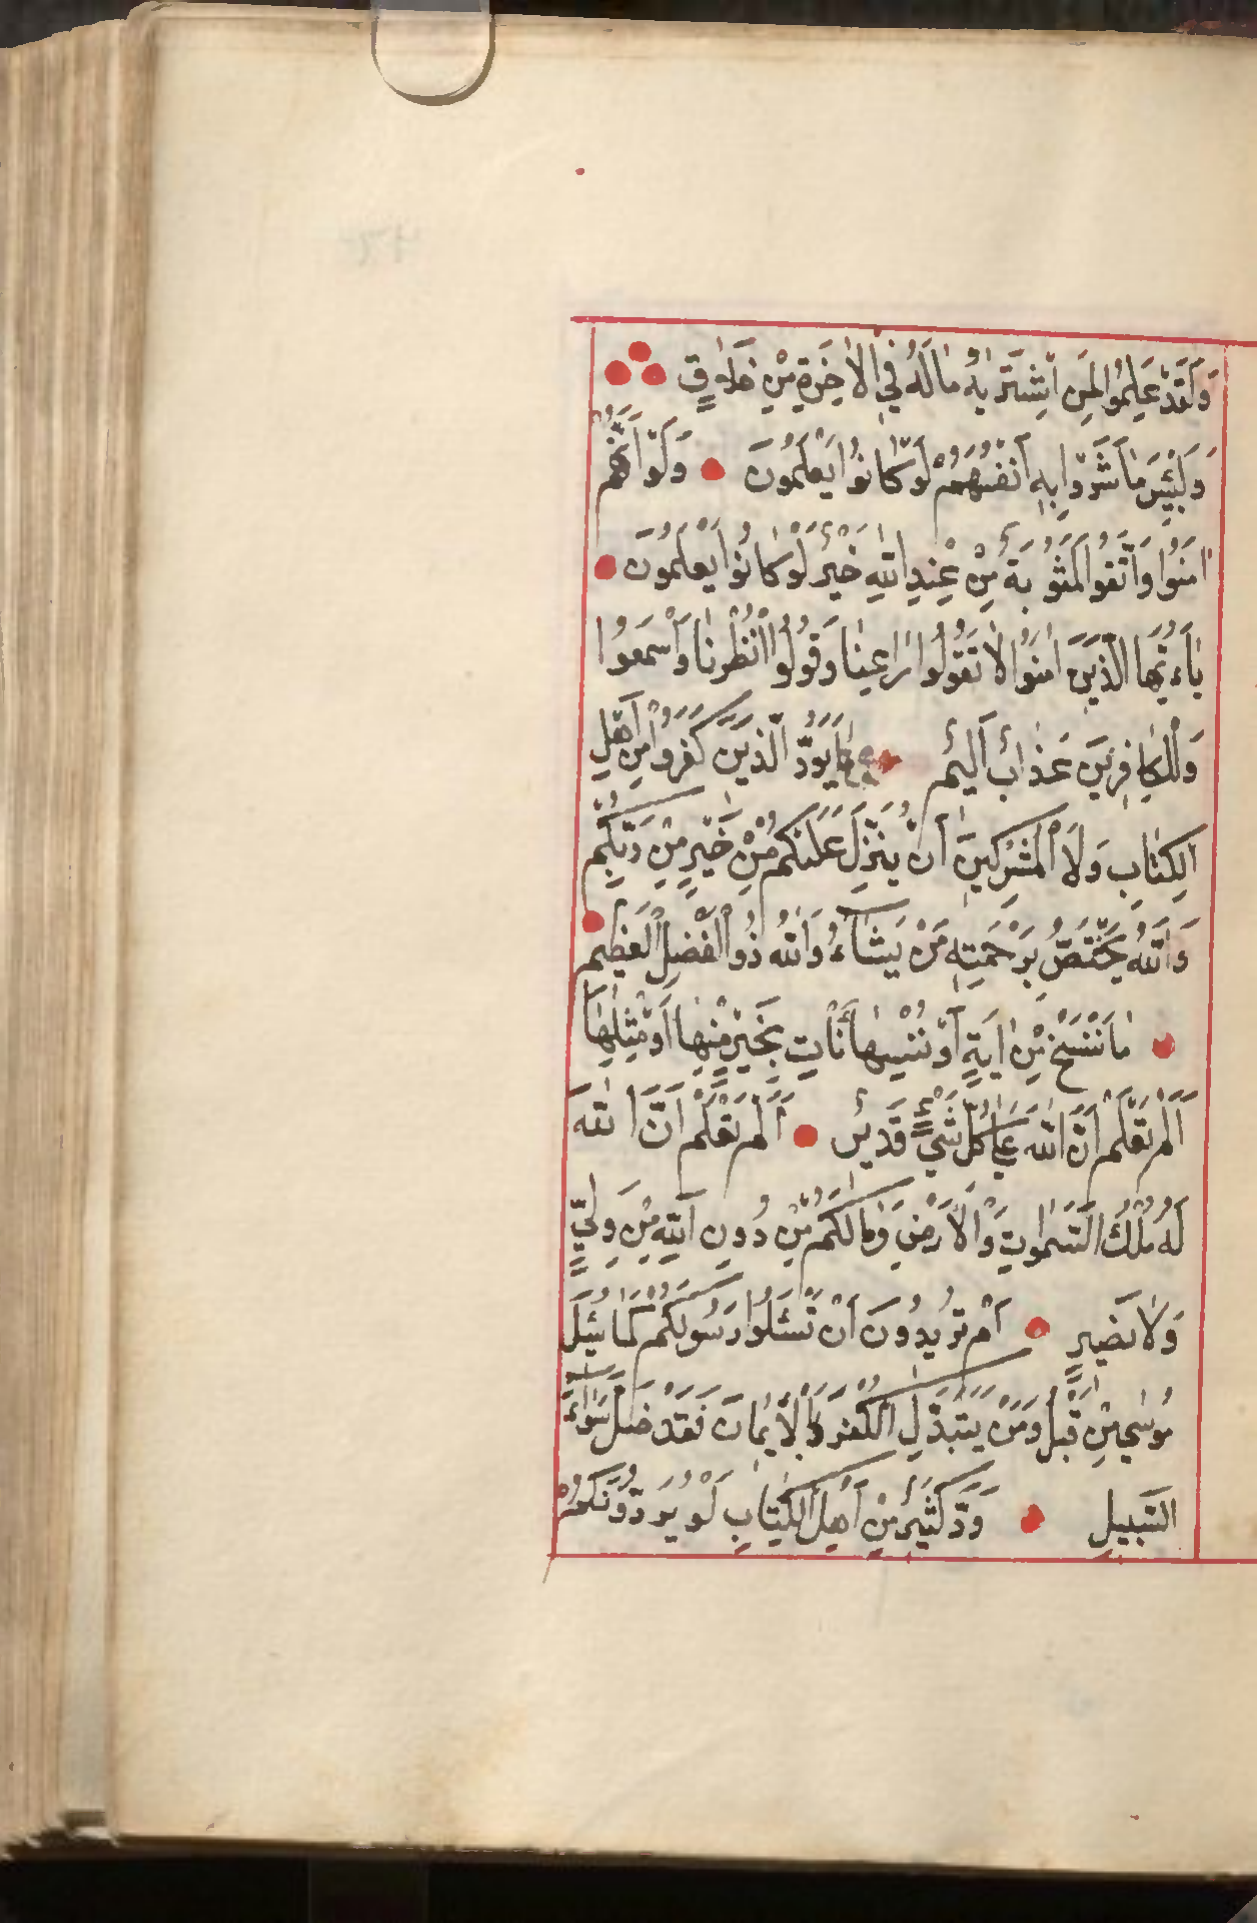 وَلَقَدْ عَلِمُوا لَمَنِ اشْتَرٰيهُ مَا لَهُ فِي الْاٰخِرَةِ مِنْ خَلَاقٍ
وَلَبِئْسَ مَا شَرَوْا بِهِ اَنْفُسَهُمْ لَوْ كَانُوا يَعْلَمُونَ وَلَوْ اَنَّهُمْ
اٰمَنُوا وَاتَّقَوْا لَمَثُوبَةٌ مِنْ عِنْدِ اللّٰهِ خَيْرٌ لَوْ كَانُوا يَعْلَمُونَ
يَاءَيُّهَا الَّذِينَ اٰمَنُوا لَا تَقُولُوا رَاعِنَا وَقُولُوا انْظُرْنَا وَاسْمَعُوا
وَلِلْكَافِرِينَ عَذَابٌ اَلِيمٌ مَا يَوَدُّ الَّذِينَ كَفَرُوا مِنْ اَهْلِ
الْكِتَابِ وَلَا الْمُشْرِكِينَ اَنْ يُنَزَّلَ عَلَيْكُمْ مِنْ خَيْرٍ مِنْ رَبِّكُمْ
وَاللّٰهُ يَخْتَصُّ بِرَحْمَتِهِ مَنْ يَشَاءُ وَاللّٰهُ ذُو الْفَضْلِ الْعَظِيمِ
مَا نَنْسَخْ مِنْ اٰيَةٍ اَوْ نُنْسِهَا نَأْتِ بِخَيْرٍ مِنْهَا اَوْ مِثْلِهَا
اَلَمْ تَعْلَمْ اَنَّ اللّٰهَ عَلٰى كُلِّ شَيْءٍ قَدِيرٌ اَلَمْ تَعْلَمْ اَنَّ اللّٰهَ
لَهُ مُلْكُ السَّمٰوَاتِ وَالْاَرْضِ وَمَا لَكُمْ مِنْ دُونِ اللّٰهِ مِنْ وَلِيٍّ
وَلَا نَصِيرٍ اَمْ تُرِيدُونَ اَنْ تَسْئَلُوا رَسُولَكُمْ كَمَا سُئِلَ
مُوسٰى مِنْ قَبْلُ وَمَنْ يَتَبَدَّلِ الْكُفْرَ بِالْاِيمَانِ فَقَدْ ضَلَّ سَوَاءَ
السَّبِيلِ وَدَّ كَثِيرٌ مِنْ اَهْلِ الْكِتَابِ لَوْ يَرُدُّونَكُمْ